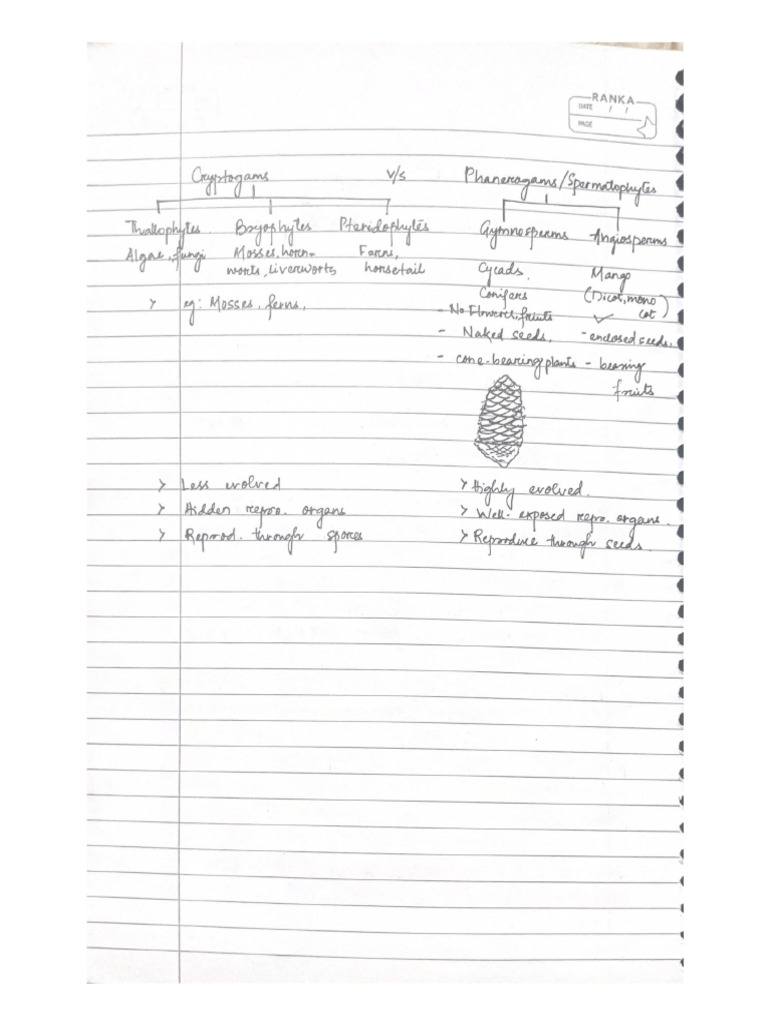 RANKA
DATE / /
PAGE
Cryptogams v/s Phanerogams/Spermatophytes
Thallophytes Bryophytes Pteridophytes Gymnosperms Angiosperms
Algae, fungi Mosses, horn- Ferns, Cycads, Mango
worts, liverworts, horsetail Conifers (Dicot, mono
> eg: Mosses, ferns, - No Flowers, fruits ✓ cot)
- Naked seeds, - enclosed seeds,
- cone-bearing plants - bearing
fruits
> Less evolved > Highly evolved.
> Hidden repro. organs > Well-exposed repro. organs.
> Reprod. through spores > Reproduce through seeds.